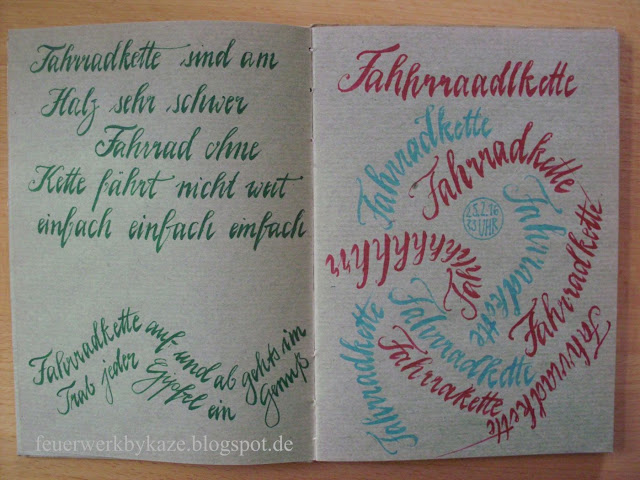 Fahrradkette sind am
Halz sehr schwer
Fahrrad ohne
Kette fährt nicht weit
einfach einfach einfach
Fahrradkette auf und ab gehts im
Trab jeder Gipfel ein Genuß
feuerwerkbykaze.blogspot.de
Fahhrraadlkette
Fahrradkette
Fahrradkette
Fahrradkette
25.2.16
23 UHR
Fahrradkette
Fahrradkette
Fahrradkette
Fahrrakette
Fahrradkette